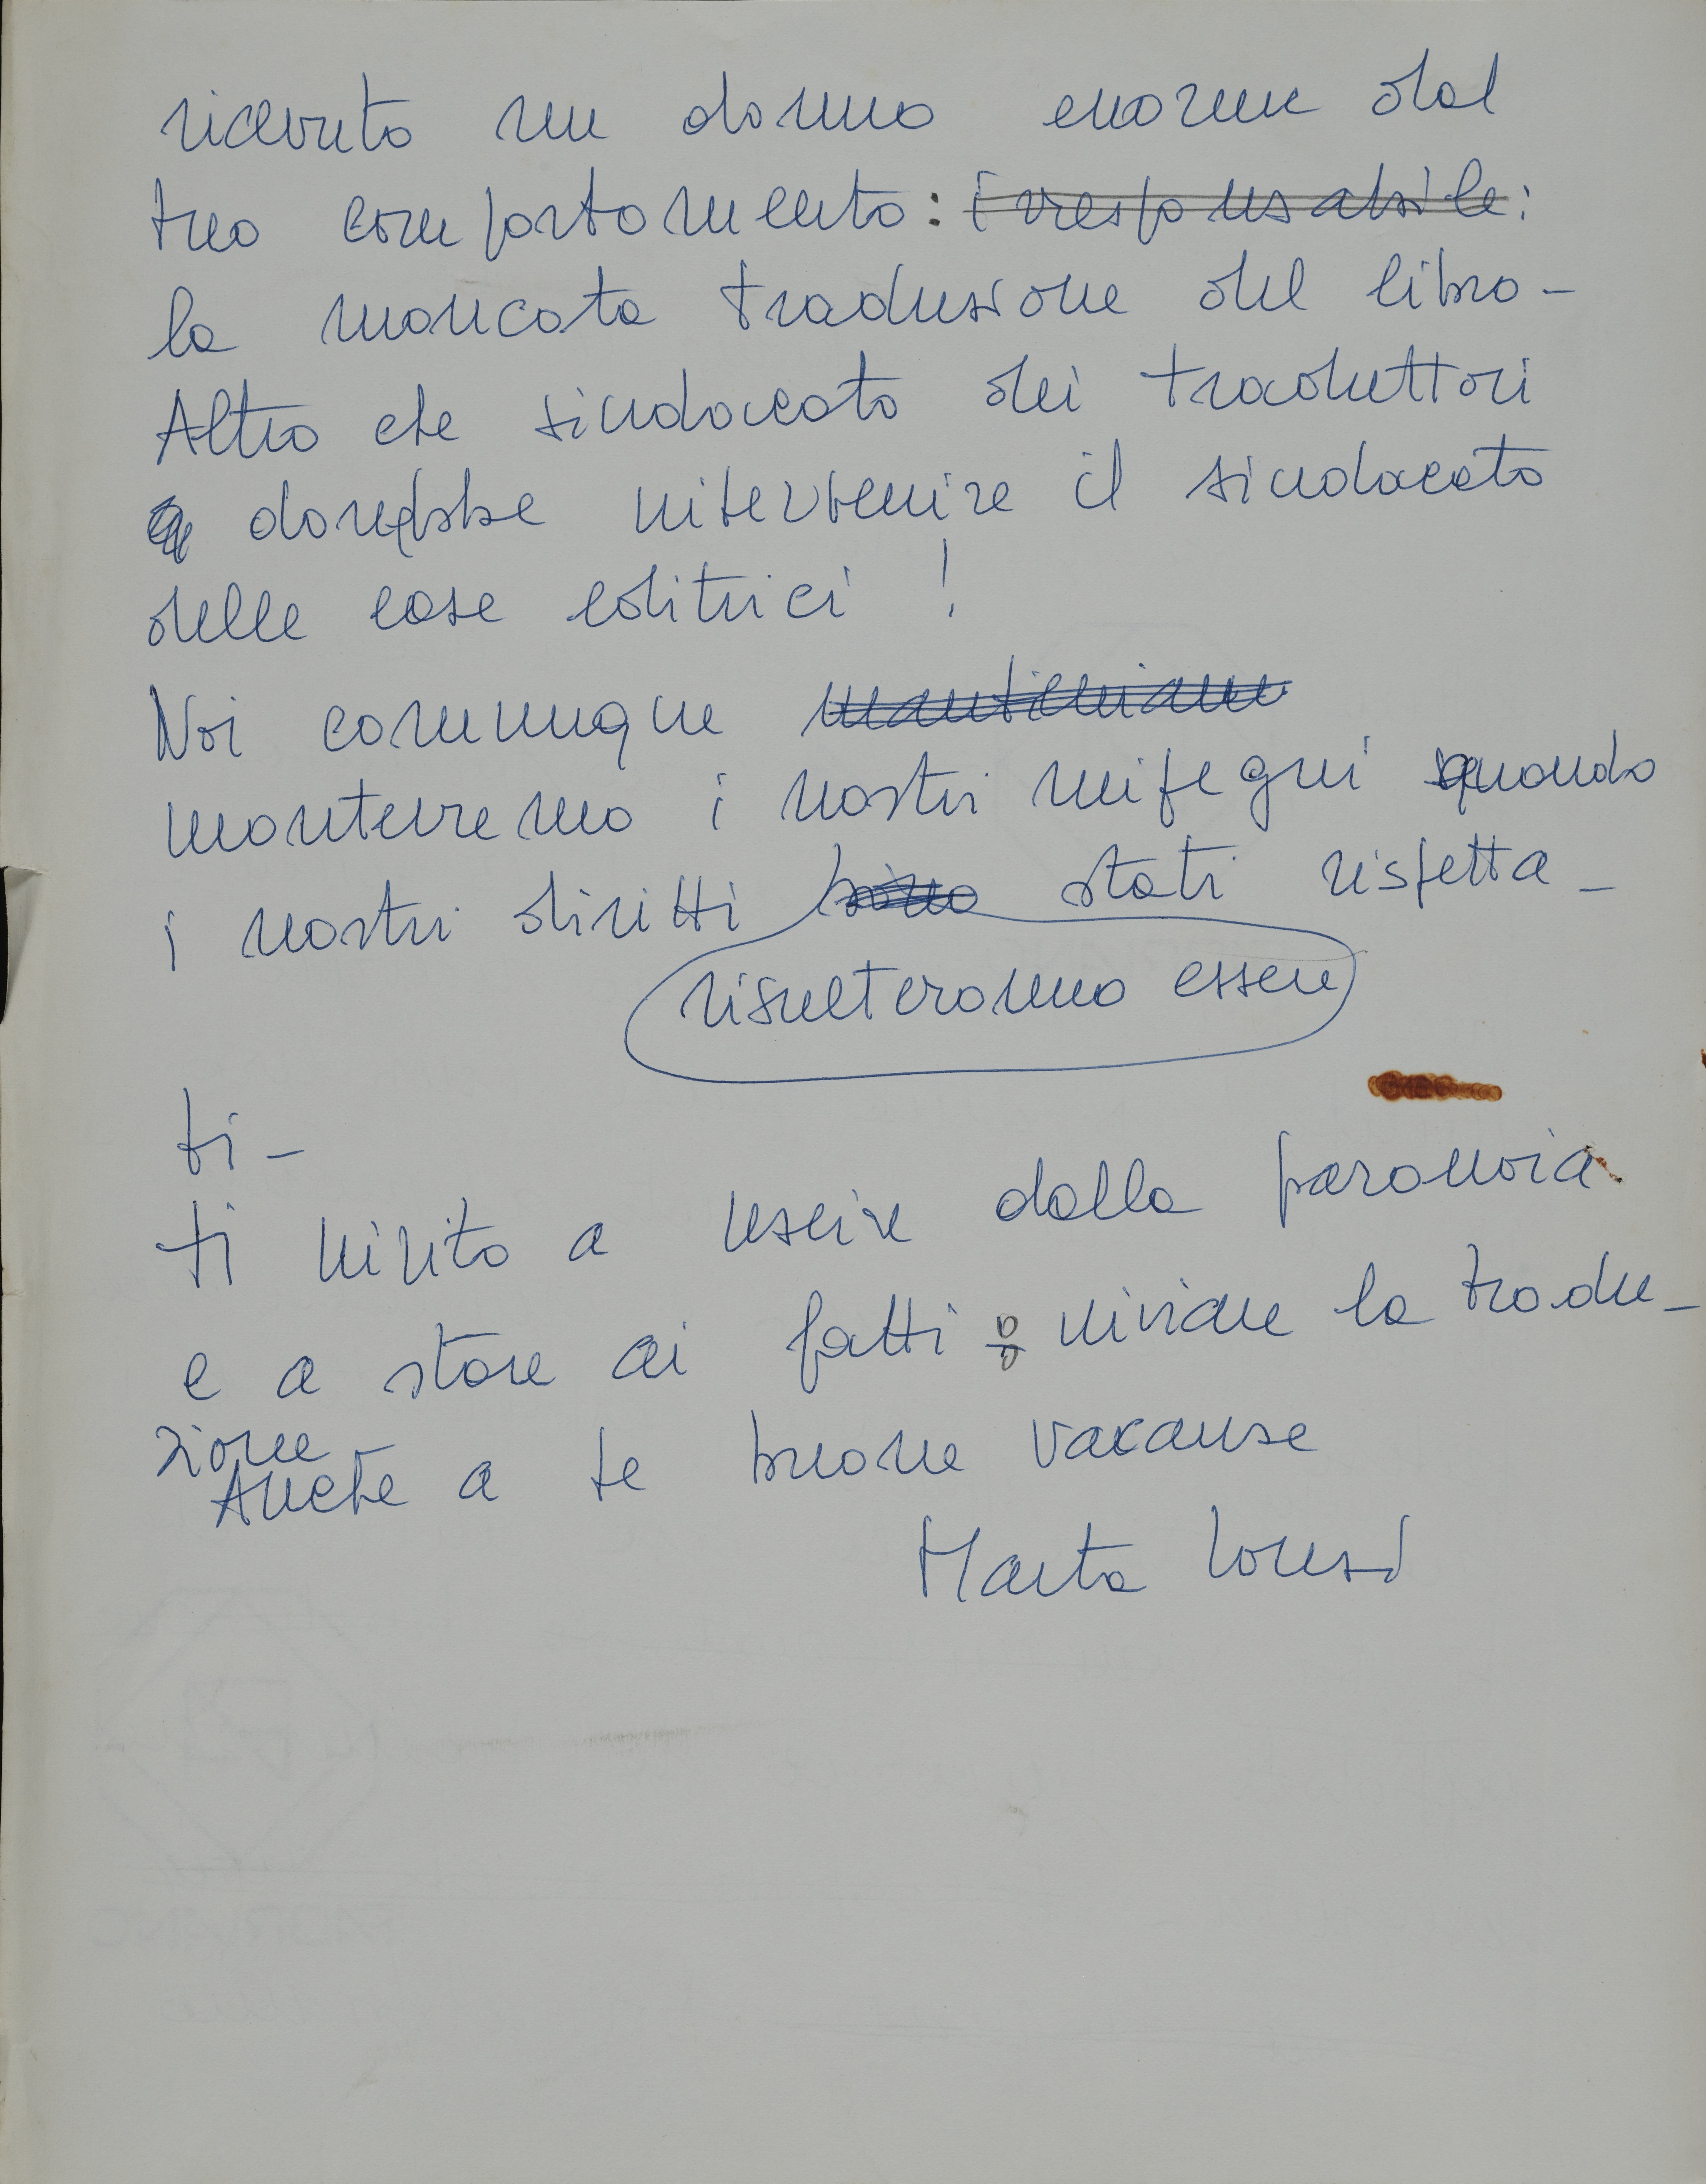 ricevuto un danno enorme dal
tuo comportamento: irresponsabile:
la mancata traduzione del libro -
Altro che sindacato dei traduttori
dovrebbe intervenire il sindacato
delle case editrici !
Noi comunque manteniamo
manterremo i nostri impegni quando
i nostri diritti sono stati rispetta-
risulteranno essere
ti -
ti invito a uscire dalla paranoia
e a stare ai fatti : inviare la tradu-
zione -
Anche a te buone vacanze
Marta Lonzi